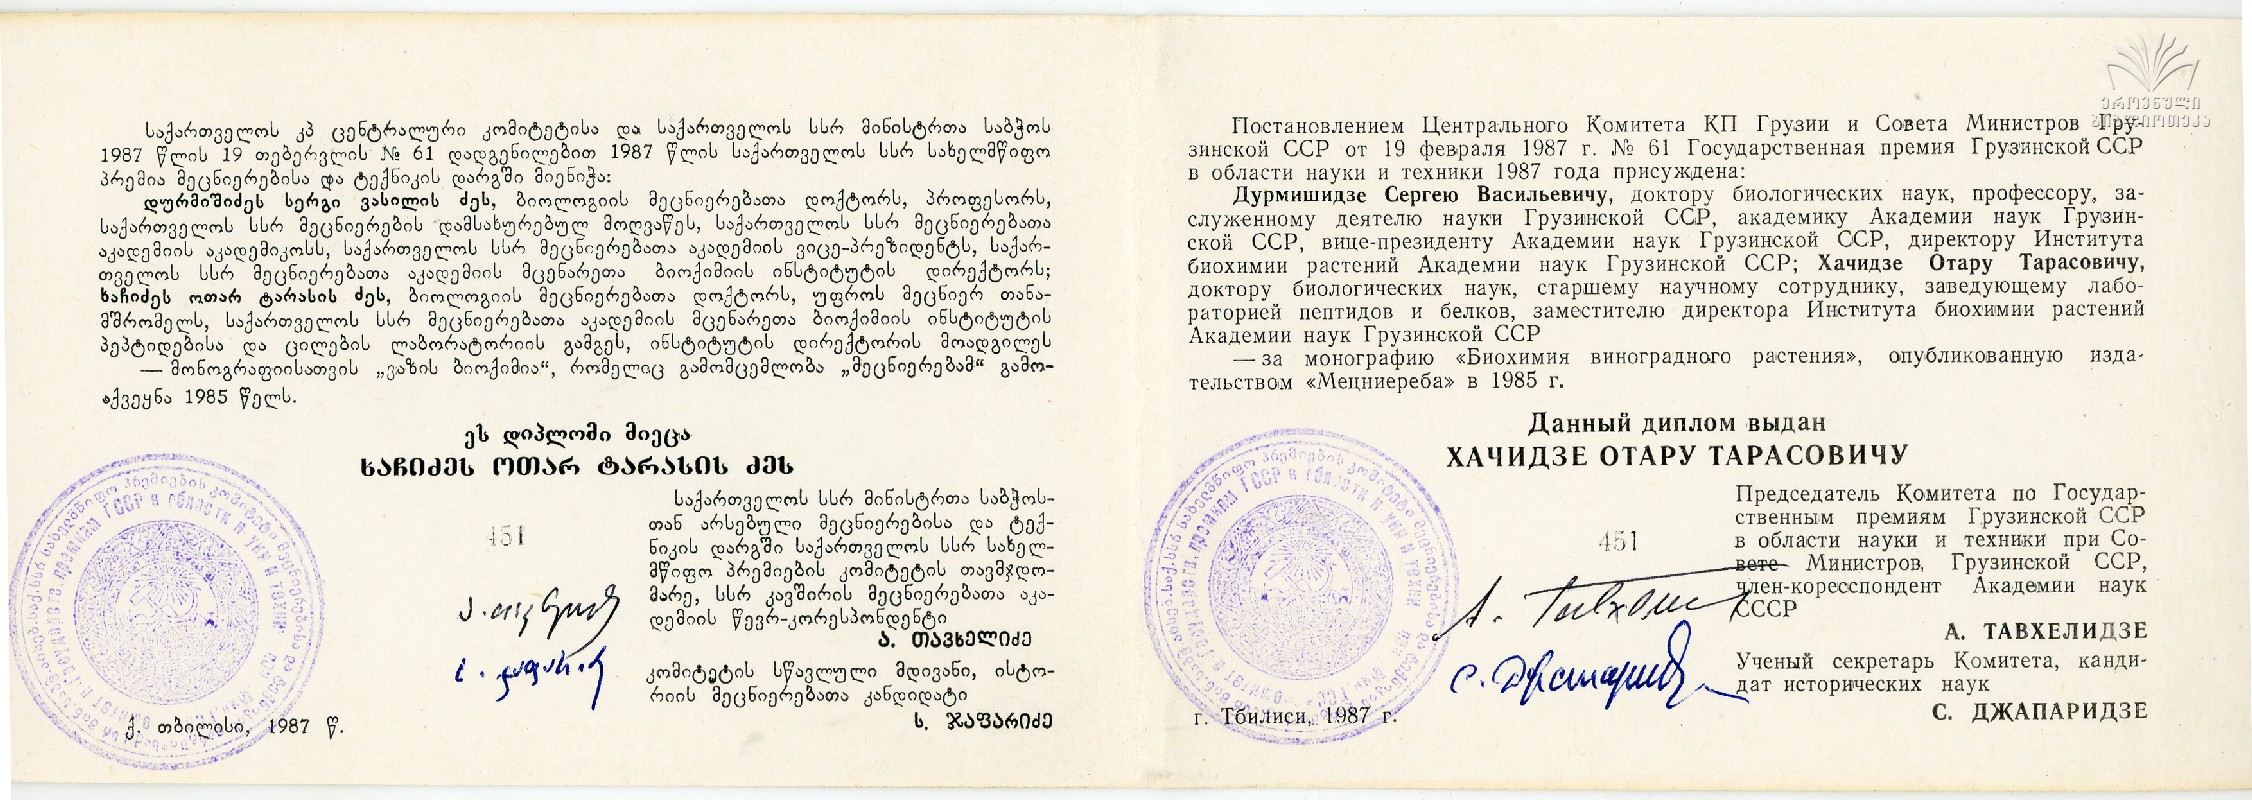 საქართველოს კპ ცენტრალური კომიტეტისა და საქართველოს სსრ მინისტრთა საბჭოს
1987 წლის 19 თებერვლის № 61 დადგენილებით 1987 წლის საქართველოს სსრ სახელმწიფო
პრემია მეცნიერებისა და ტექნიკის დარგში მიენიჭა:
დურმიშიძეს სერგი ვასილის ძეს, ბიოლოგიის მეცნიერებათა დოქტორს, პროფესორს,
საქართველოს სსრ მეცნიერების დამსახურებულ მოღვაწეს, საქართველოს სსრ მეცნიერებათა
აკადემიის აკადემიკოსს, საქართველოს სსრ მეცნიერებათა აკადემიის ვიცე-პრეზიდენტს, საქარ-
თველოს სსრ მეცნიერებათა აკადემიის მცენარეთა ბიოქიმიის ინსტიტუტის დირექტორს;
ხაჩიძეს ოთარ ტარასის ძეს, ბიოლოგიის მეცნიერებათა დოქტორს, უფროს მეცნიერ თანა-
მშრომელს, საქართველოს სსრ მეცნიერებათა აკადემიის მცენარეთა ბიოქიმიის ინსტიტუტის
პეპტიდებისა და ცილების ლაბორატორიის გამგეს, ინსტიტუტის დირექტორის მოადგილეს
— მონოგრაფიისათვის „ვაზის ბიოქიმია“, რომელიც გამომცემლობა „მეცნიერებამ“ გამო-
აქვეყნა 1985 წელს.
ეს დიპლომი მიეცა
ხაჩიძეს ოთარ ტარასის ძეს
451
საქართველოს სსრ მინისტრთა საბჭოს-
თან არსებული მეცნიერებისა და ტექ-
ნიკის დარგში საქართველოს სსრ სახელ-
მწიფო პრემიების კომიტეტის თავმჯდო-
მარე, სსრ კავშირის მეცნიერებათა აკა-
დემიის წევრ-კორესპონდენტი
ა. თავხელიძე
კომიტეტის სწავლული მდივანი, ისტო-
რიის მეცნიერებათა კანდიდატი
ს. ჯაფარიძე
ქ. თბილისი, 1987 წ.
ეროვნული
ბიბლიოთეკა
Постановлением Центрального Комитета КП Грузии и Совета Министров Гру-
зинской ССР от 19 февраля 1987 г. № 61 Государственная премия Грузинской ССР
в области науки и техники 1987 года присуждена:
Дурмишидзе Сергею Васильевичу, доктору биологических наук, профессору, за-
служенному деятелю науки Грузинской ССР, академику Академии наук Грузин-
ской ССР, вице-президенту Академии наук Грузинской ССР, директору Института
биохимии растений Академии наук Грузинской ССР; Хачидзе Отару Тарасовичу,
доктору биологических наук, старшему научному сотруднику, заведующему лабо-
раторией пептидов и белков, заместителю директора Института биохимии растений
Академии наук Грузинской ССР
— за монографию «Биохимия виноградного растения», опубликованную изда-
тельством «Мецниереба» в 1985 г.
Данный диплом выдан
ХАЧИДЗЕ ОТАРУ ТАРАСОВИЧУ
451
Председатель Комитета по Государ-
ственным премиям Грузинской ССР
в области науки и техники при Со-
вете Министров Грузинской ССР,
член-кореспондент Академии наук
СССР
А. ТАВХЕЛИДЗЕ
Ученый секретарь Комитета, канди-
дат исторических наук
С. ДЖАПАРИДЗЕ
г. Тбилиси, 1987 г.